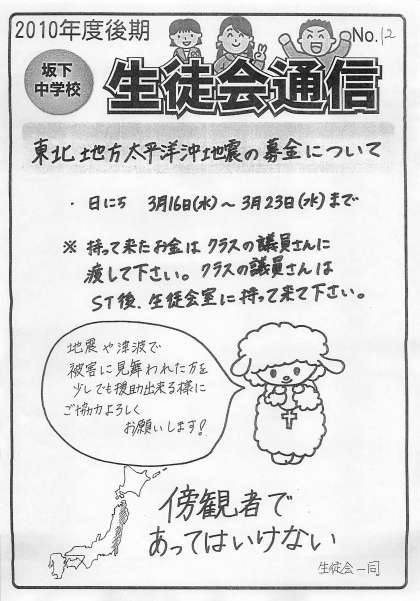 2010年度後期
No.12
坂下
中学校
生徒会通信
東北地方太平洋沖地震の募金について
・日にち 3月16日(水)～3月23日(水)まで
※ 持って来たお金はクラスの議員さんに
渡して下さい。クラスの議員さんは
ST後、生徒会室に持って来て下さい。
地震や津波で
被害に見舞われた方を
少しでも援助出来る様に
ご協力よろしく
お願いします!
傍観者で
あってはいけない
生徒会一同